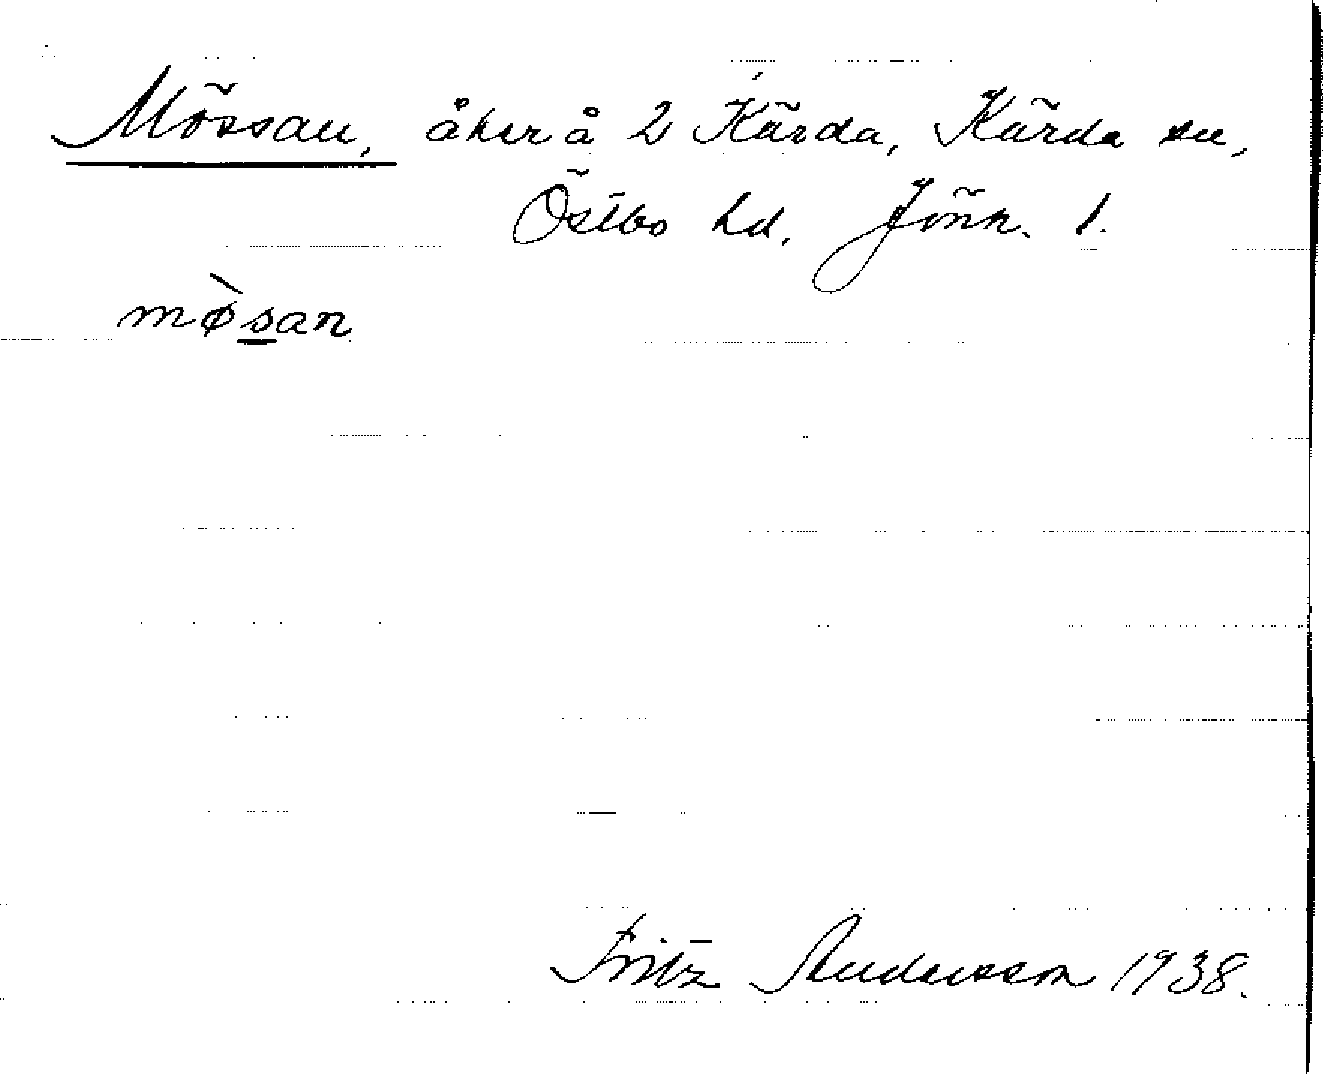 Mössan, åker å 2 Kärda, Kärda sn,
Östbo hd. Jönk. l.
mø̀san
Fritz Andersson 1938.